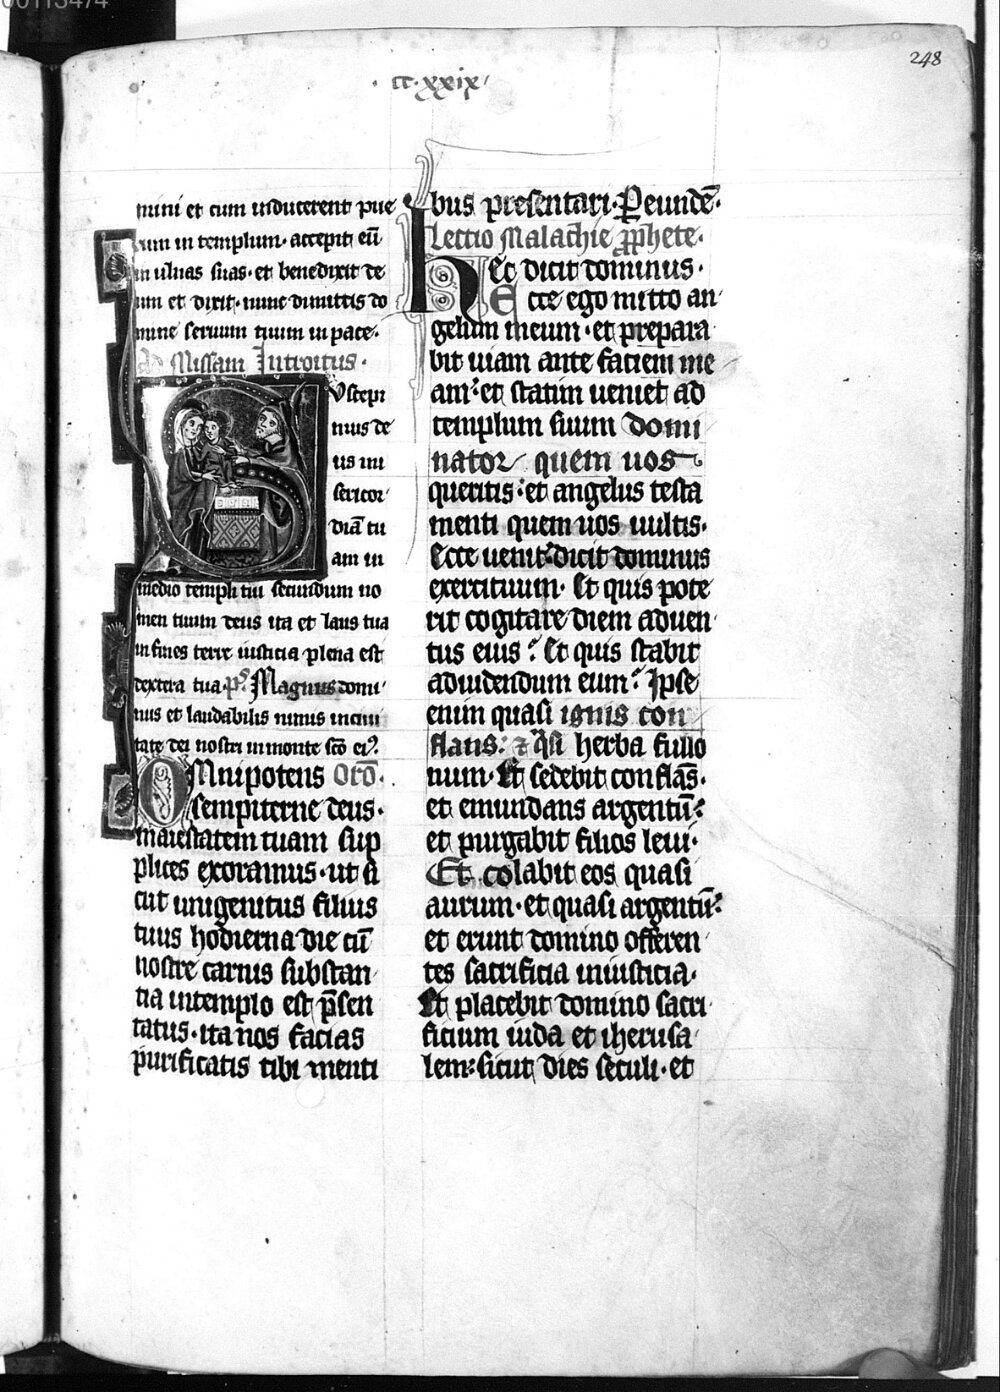 00113474
248
·cc·xxix·
mini et cum inducerent pue
rum in templum· accepit eū
in ulnas suas· et benedixit de
um et dixit· nunc dimittis do
mine seruum tuum in pace·
Ad Missam Introitus·
Suscepi
mus de
us mi
sericor
diā tu
am in
medio templi tui secundum no
men tuum deus ita et laus tua
in fines terre iusticia plena est
dextera tua· ps̄ Magnus domi
nus et laudabilis nimis in ciui
tate dei nostri in monte scō eiꝰ·
OMnipotens Orō·
sempiterne deus·
maiestatem tuam sup
plices exoramus· ut si
cut unigenitus filius
tuus hodierna die cū
nostre carnis substan
tia in templo est p̄sen
tatus· ita nos facias
purificatis tibi menti
bus presentari· Per eundē·
Lectio Malachie ꝓphete·
Hec dicit dominus·
Ecce ego mitto an
gelum meum· et prepara
bit uiam ante faciem me
am· et statim ueniet ad
templum suum domi
nator quem uos
queritis· et angelus testa
menti quem uos uultis·
Ecce uenit dicit dominus
exercituum· Et quis pote
rit cogitare diem aduen
tus eius? Et quis stabit
ad uidendum eum? Ipse
enim quasi ignis con
flans: ⁊ qᵃsi herba fullo
num· Et sedebit conflās·
et emundans argentū:
et purgabit filios leui·
Et colabit eos quasi
aurum· et quasi argentū:
et erunt domino offeren
tes sacrificia in iusticia·
Et placebit domino sacri
ficium iuda et iherusa
lem: sicut dies seculi· et